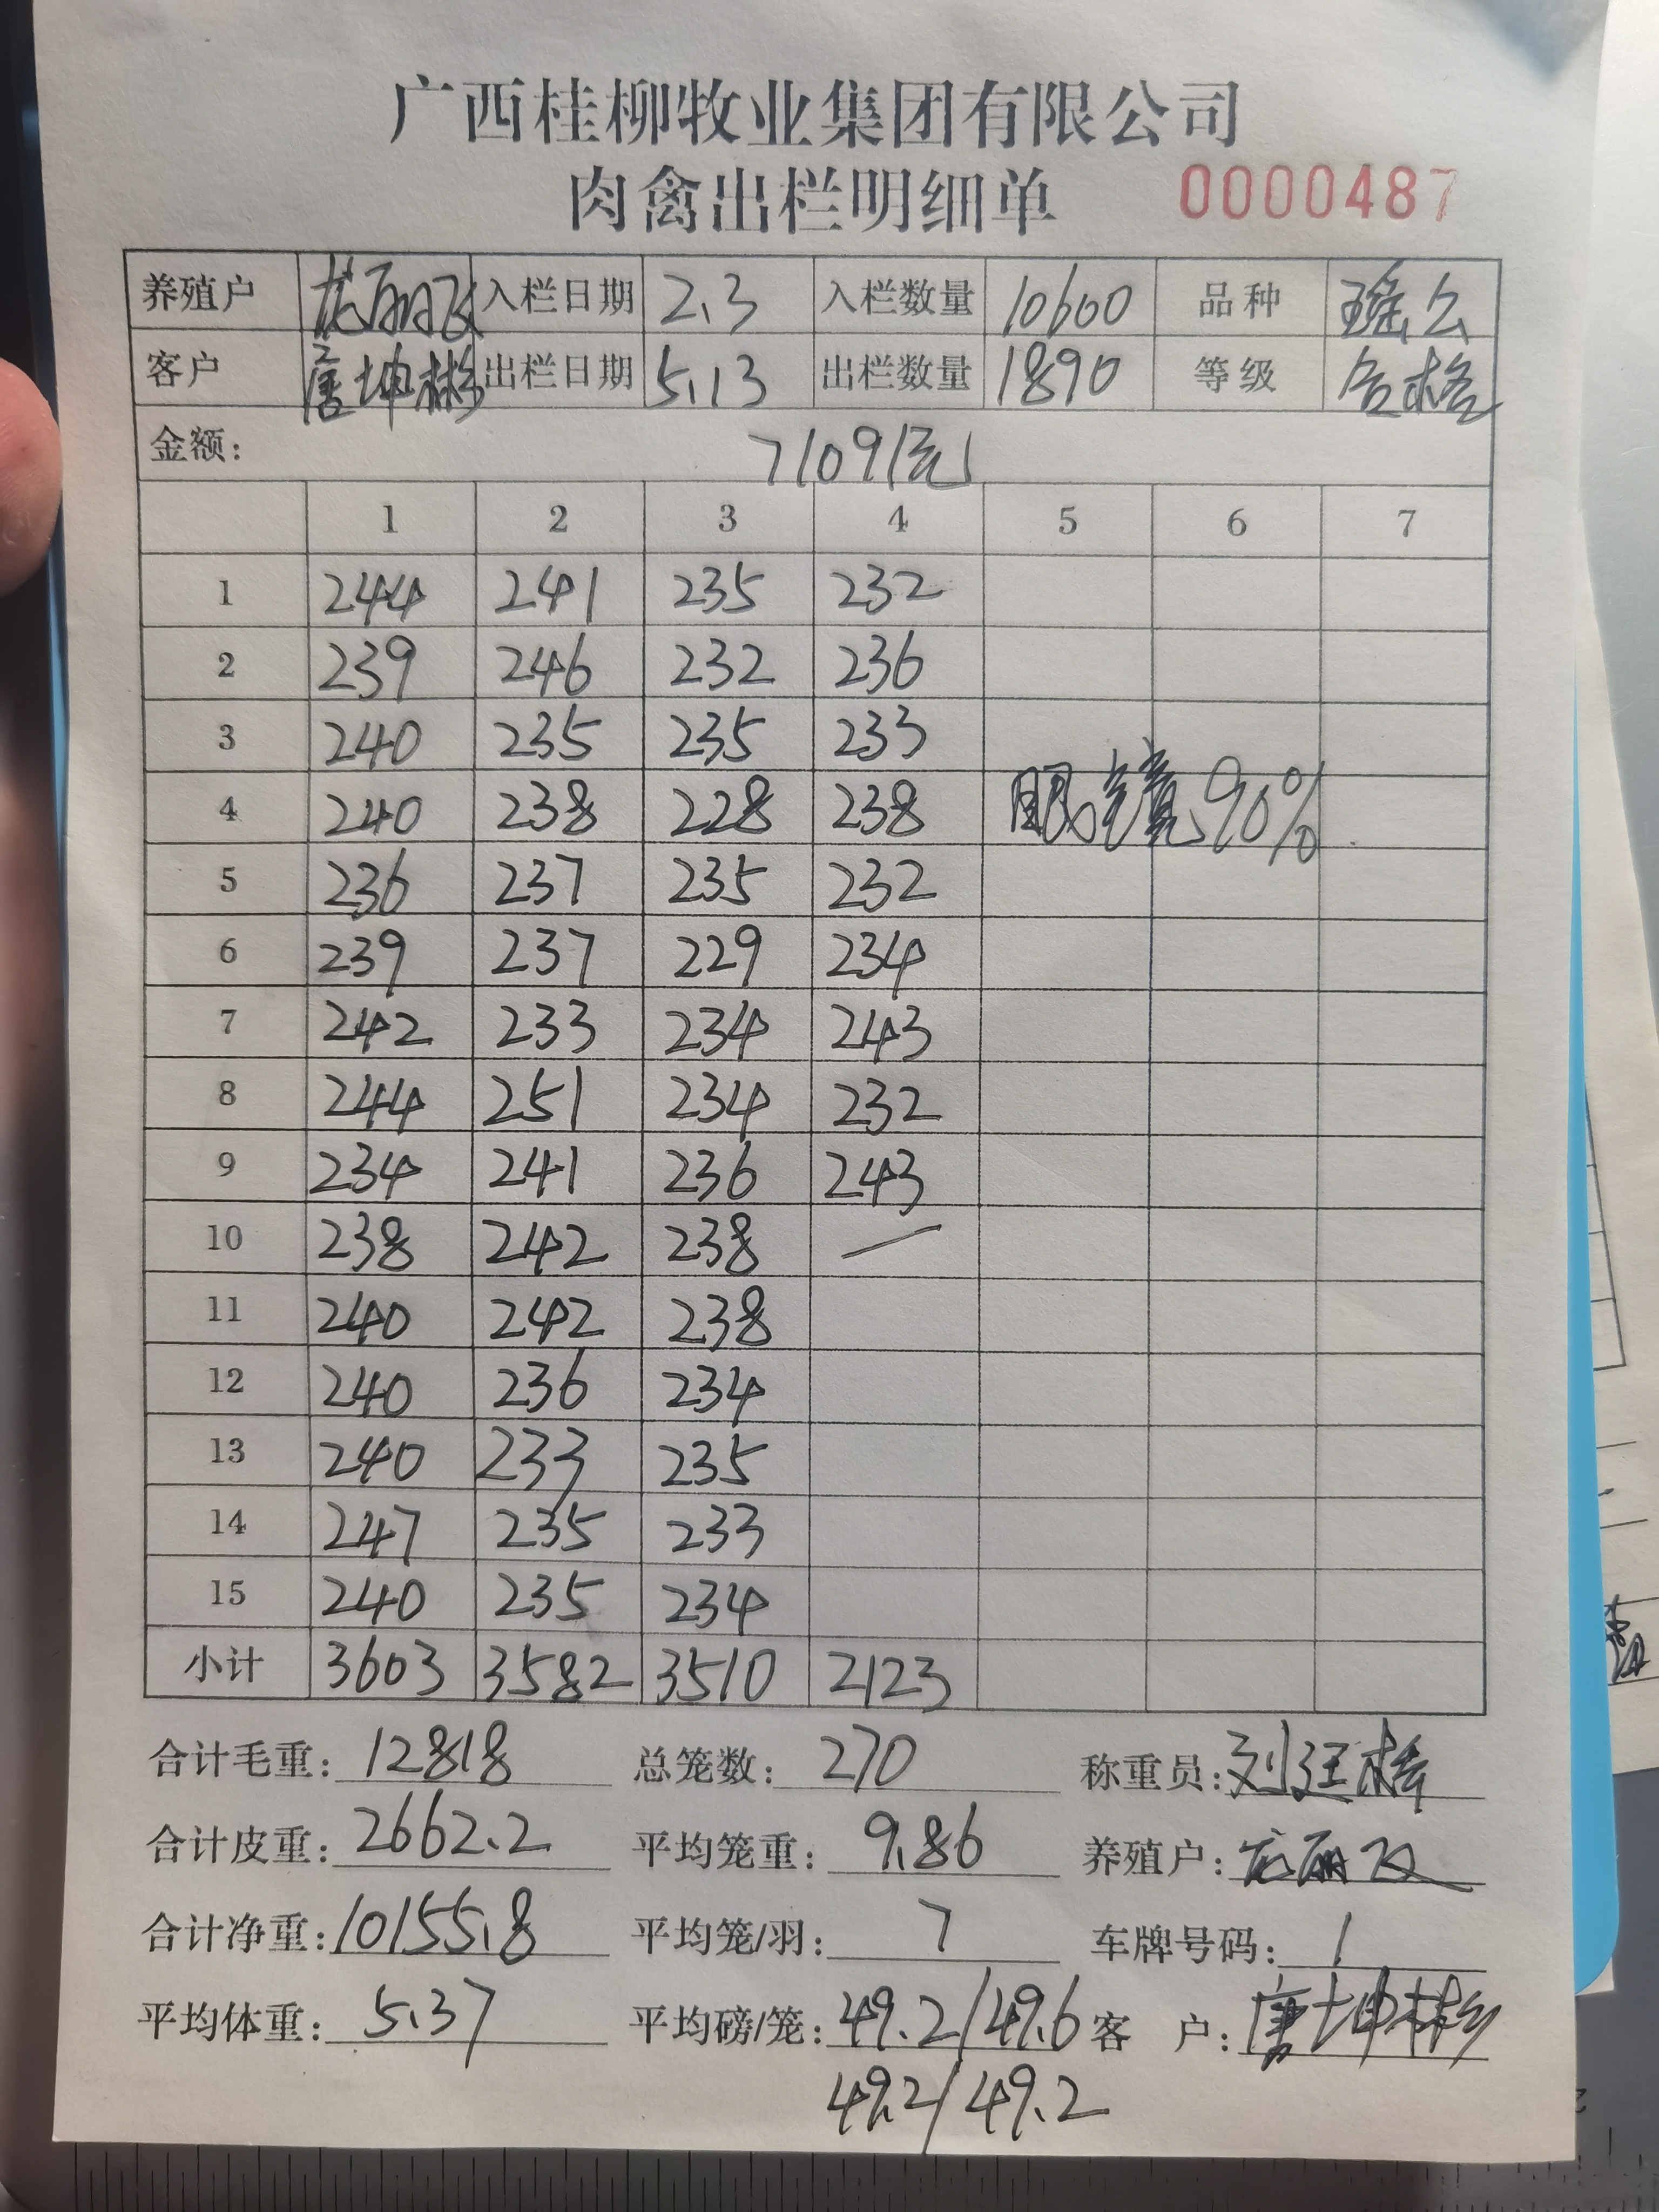 广西桂柳牧业集团有限公司
肉禽出栏明细单 0000487
养殖户 龙丽飞 入栏日期 2.3 入栏数量 10600 品种 瑶公
客户 唐坤彬 出栏日期 5.13 出栏数量 1890 等级 合格
金额: 71091元
1 2 3 4 5 6 7
1 244 241 235 232
2 239 246 232 236
3 240 235 235 233
4 240 238 228 238 眼镜90%
5 236 237 235 232
6 239 237 229 234
7 242 233 234 243
8 244 251 234 232
9 234 241 236 243
10 238 242 238 —
11 240 242 238
12 240 236 234
13 240 233 235
14 247 235 233
15 240 235 234
小计 3603 3582 3510 2123
合计毛重: 12818 总笼数: 270 称重员: 刘
合计皮重: 2662.2 平均笼重: 9.86 养殖户: 龙丽飞
合计净重: 10155.8 平均笼/羽: 7 车牌号码: 1
平均体重: 5.37 平均磅/笼: 49.2/49.6 客户: 唐坤彬
49.2/49.2